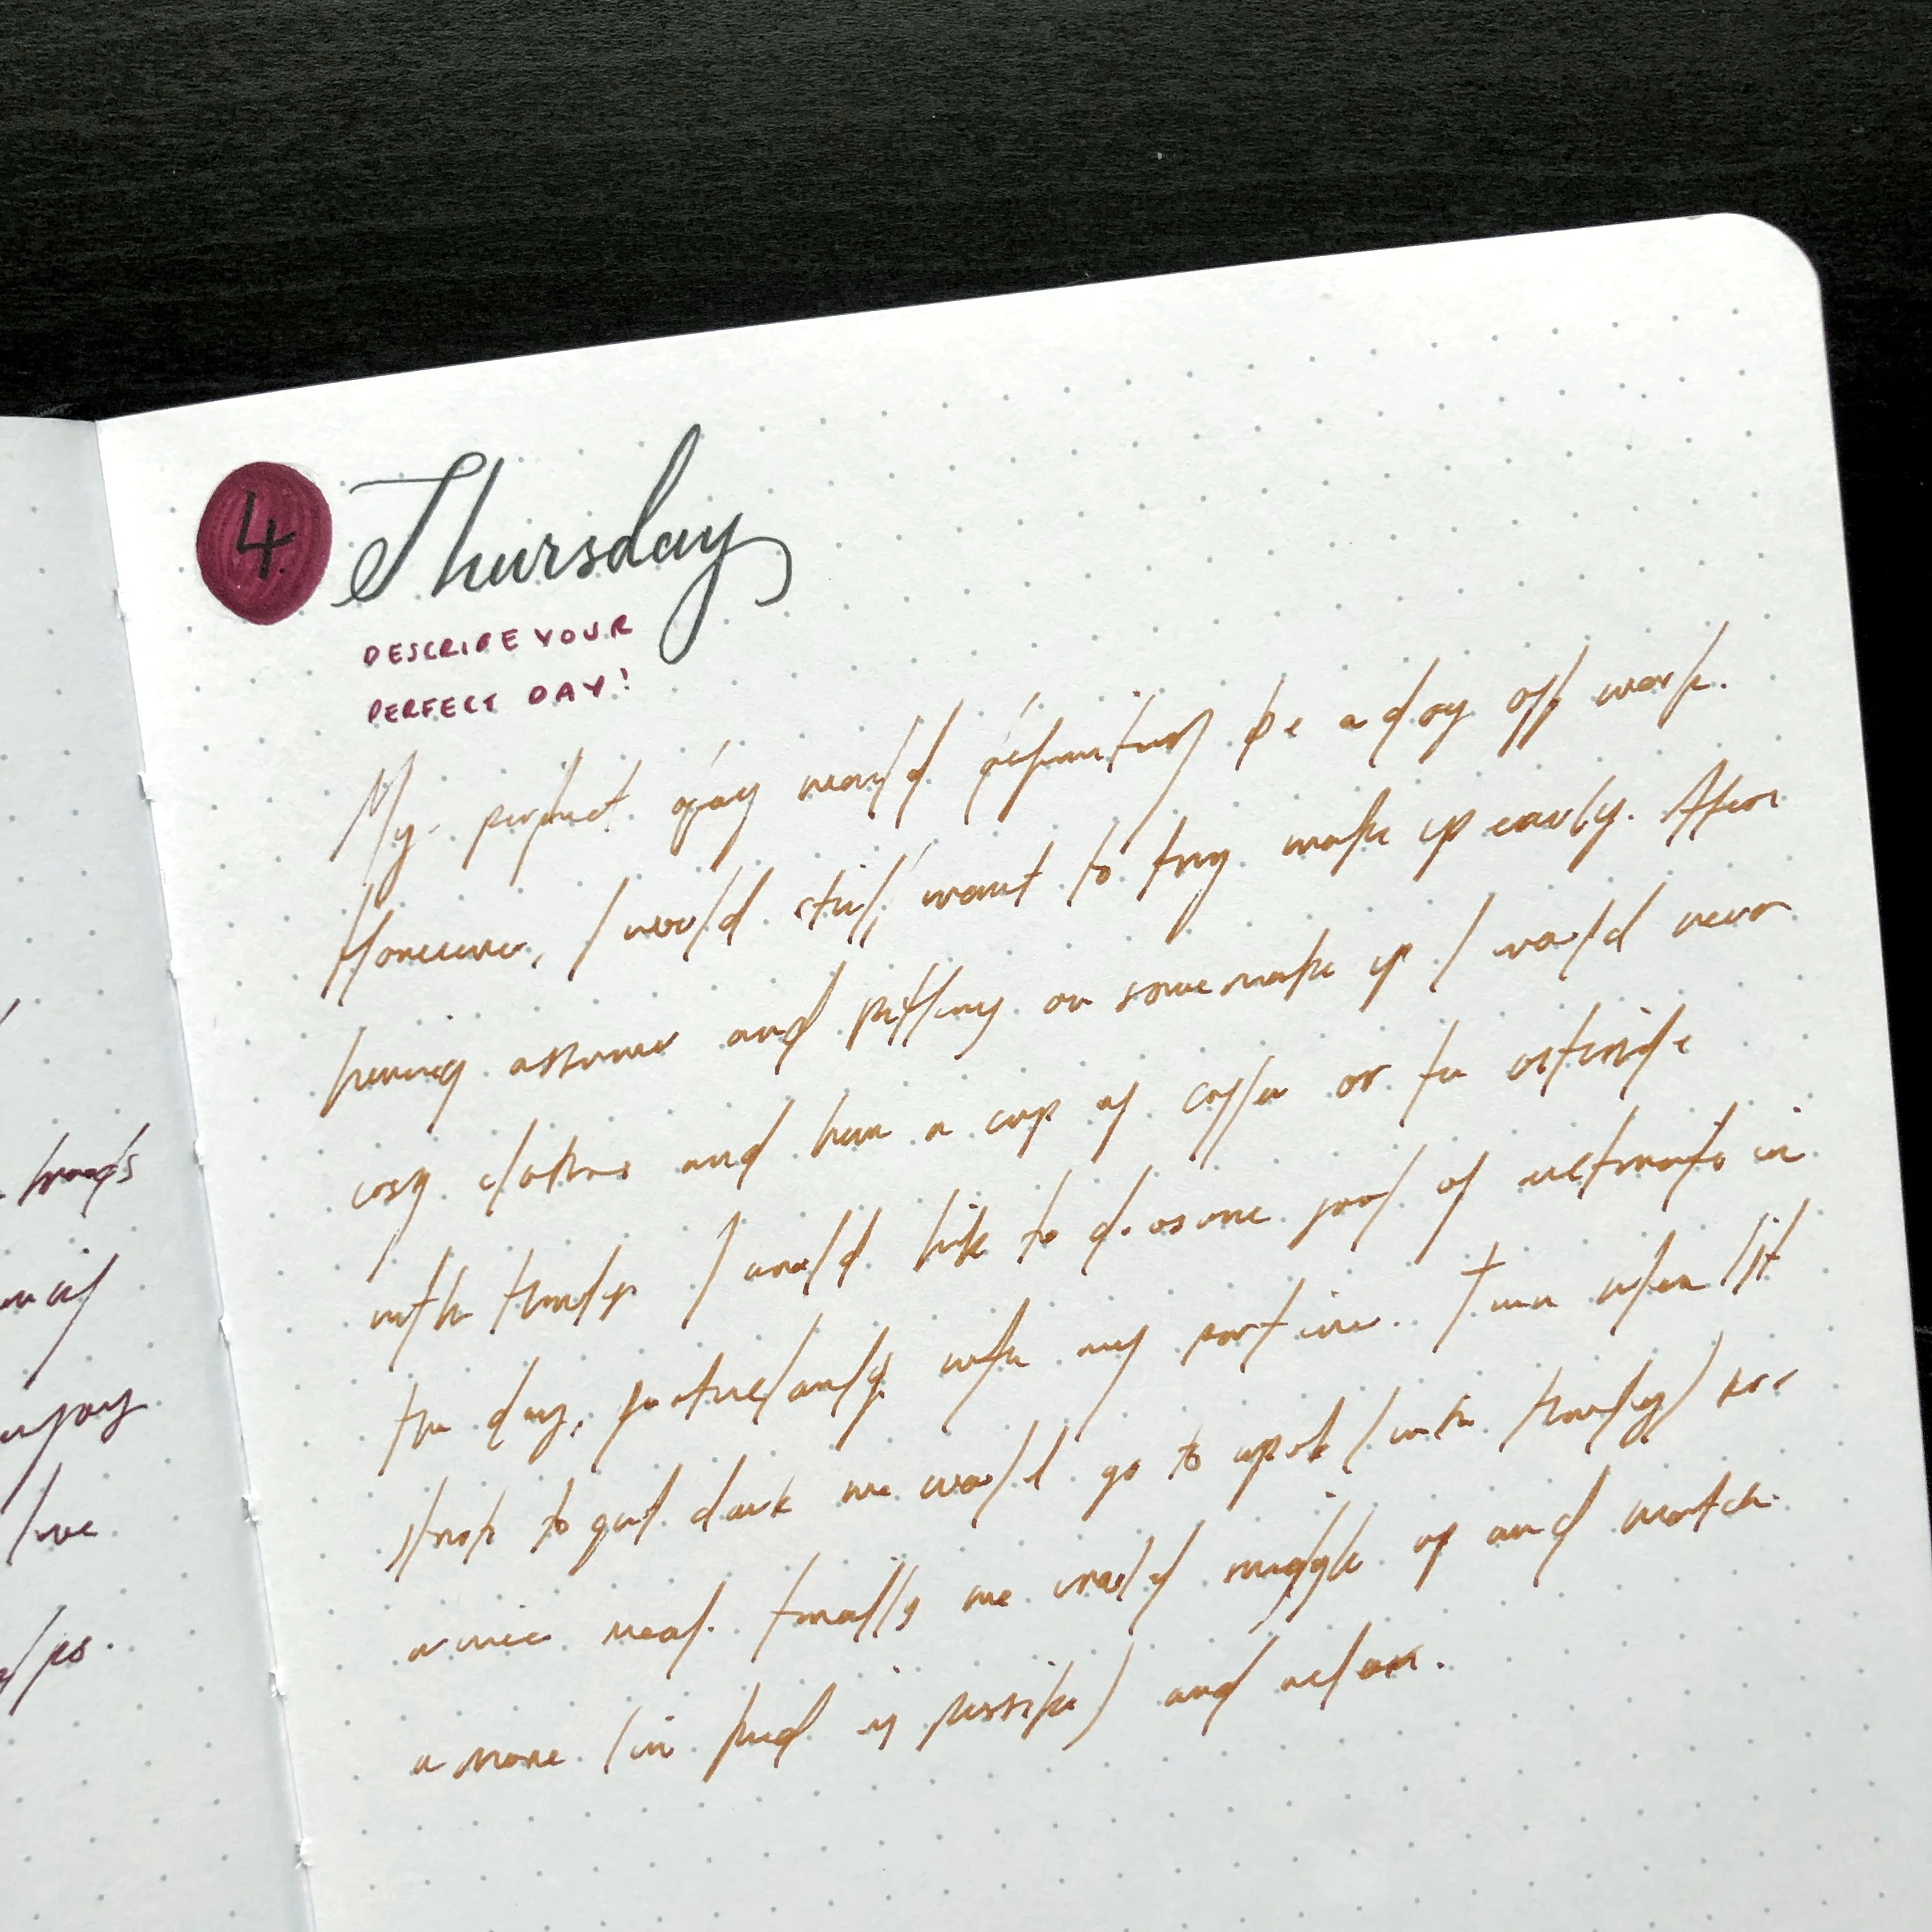 4. Thursday
DESCRIBE YOUR
PERFECT DAY!
My perfect day would definitely be a day off work.
However, I would still want to try wake up early. After
having a shower and putting on some make up I would wear
cosy clothes and have a cup of coffee or tea outside
with I would like to do some sort of in
the day, with my partner. Then when it
starts to get dark we would go to (with) for
a nice meal. Finally we would snuggle up and watch
a movie (in bed if possible) and relax.
enjoy
live